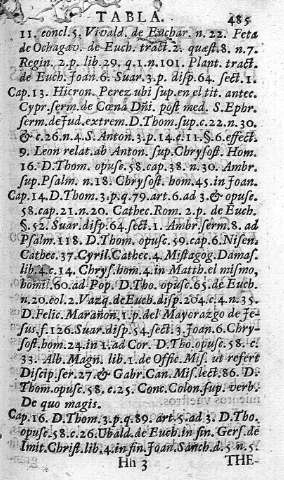 TABLA. 485
11. concl.5. Vivald. de Euchar. n.22. Feta
de Ochagav. de Euch. tract.2. quæst.8. n.7.
Regin. 2.p.lib.29. q.1.n.101. Plant. tract.
de Euch. Joan.6. Suar.3.p. disp.64. sect.1.
Cap.13. Hieron. Perez ubi sup.en el tit. antec.
Cypr.serm.de Cœna Dñi. post med. S. Ephr.
serm.de Jud.extrem.D.Thom.sup.c.22.n.30
& c.26.n.4. S. Anton. 3.p.14.c.11.§.6.effect.
9. Leon relat.ab Anton. sup.Chrysost. Hom.
16. D.Thom. opusc. 58.cap.38. n.30. Ambr.
sup.Psalm. n.18. Chrysost. hom.45.in Joan.
Cap.14. D.Thom.3.p.q.79. art.6.ad 3.& opusc.
58.cap.21.n.20. Cathec.Rom. 2.p. de Euch.
§.52. Suar.disp.64.sect.1. Ambr.serm.8. ad
Psalm.118. D.Thom. opusc. 59.cap.6. Nisen.
Cathec. 37.Cyril.Cathec.4. Mistagog. Damas.
lib.4.c.14. Chrys.hom.4.in Matth.el mismo,
homil.60.ad Pop. D.Tho.opusc.65.de Euch.
n.20.col.2. Vazq.de Euch.disp.204.c.4.n.35.
D.Felic. Marañon,1.p.del Mayorazgo de Je-
sus,f.126.Suar.disp.54.sect.3.Joan.6.Chry-
sost.hom.24.in 1.ad Cor. D.Tho.opusc.58.c.
33. Alb. Magn. lib.1.de Offic. Mis. ut refert
Discip.ser.27.& Gabr.Can. Mis.lect.86. D.
Thom.opusc.58.c.25. Conc.Colon.sup. verb.
De quo magis.
Cap.16. D.Thom.3.p.q.89. art.5.ad 3. D.Tho.
opusc.58.c.26.Ubald.de Euch.in fin. Gers.de
Imit.Christ.lib.4.in fin.Joan.Sanch.d.5.n.5.
Hh 3 THE-